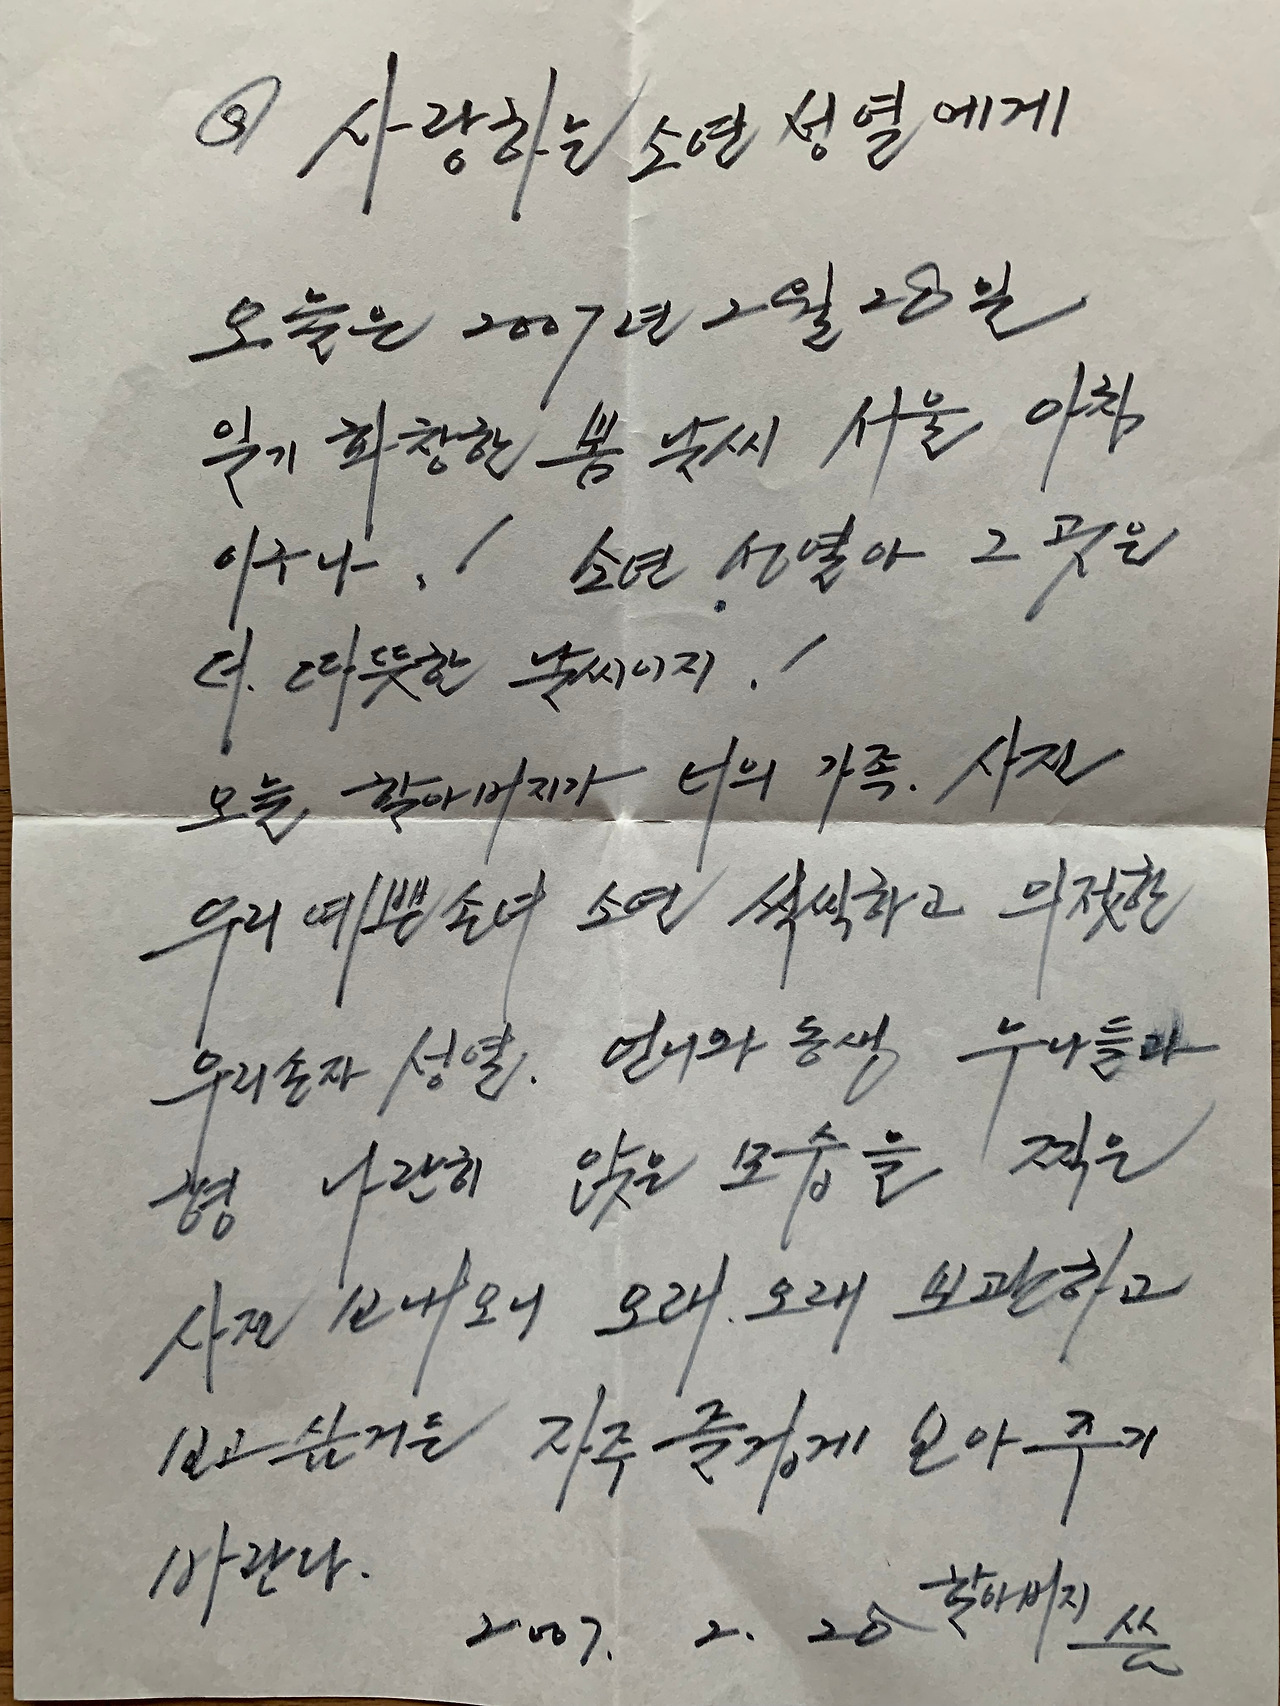 사랑하는 소연 성열에게
오늘은 2007년 2월 28일
일기 화창한 봄 날씨 서울 아침
이구나.! 소연 성열아 그곳은
더. 따뜻한 날씨이지.!
오늘 할아버지가 너의 가족. 사진
우리 예쁜손녀 소연 씩씩하고 의젓한
우리손자 성열. 언니와 동생 누나들과
나란히 앉은 모습을 찍은
사진 보내오니 오래.오래 보관하고
보고싶거든 자주 즐겁게 보아주기
바란다.
2007. 2. 28 할아버지 씀